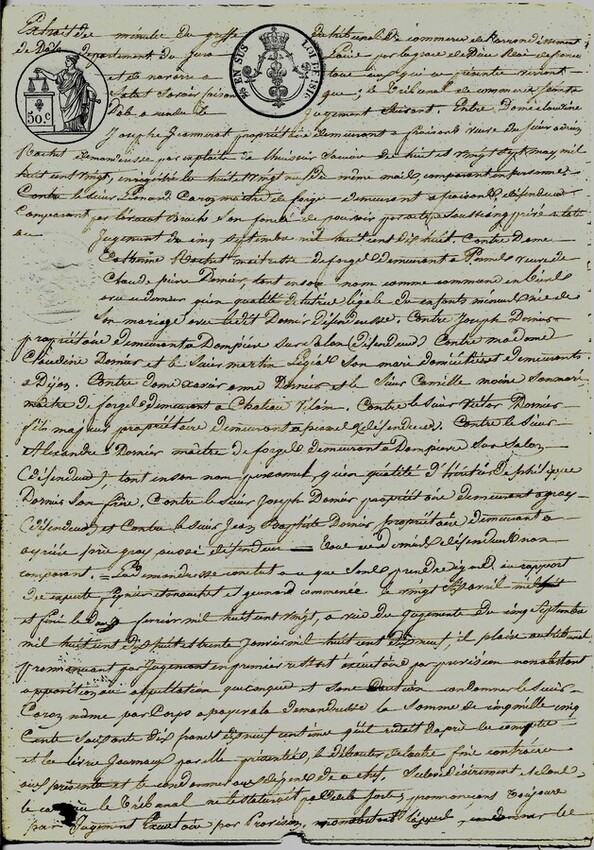 Extrait des minutes du greffe du tribunal de commerce de l'arrondissement
de Dole departement du jura Louis par la grace de Dieu Roi de france
et de navarre a tous ceux qui ces presente verront
Salut Savoir faisons que, le Tribunal de commerce séant a
Dole a rendu le Jugement Suivant. Entre Dame claudine
EN SUS LOI DE 1816
50c
Josephe Jeanneret propriétaire demeurant a foisans veuve du Sieur
Rachet demanderesse par exploits de lhuissier du huit et vingt sept may mil
huit cent vingt, enregistré le huit vingt du même mois, comparant en personne
Contre le Sieur Léonard Caroz maitre de forge demeurant a fraisans, défendeur
Comparant par lavocat son fondé de pouvoir par acte Sous Seing privé
au Jugement du cinq septembre mil huit cent dix huit. Contre Dame
Catherine Rochet maitresse de forge demeurant a Pesmes veuve de
Claude pierre Dornier, tant en son nom comme commune en biens
avec ce dernier qu'en qualité de tutrice légale des enfants mineurs nés de
Son mariage avec ledit Dornier défenderesse. Contre Joseph Dornier
propriétaire demeurant a Dampierre Sur Salon (défendeur) Contre madame
Claudine Dornier et le Sieur martin Légéas Son mari domiciliés et demeurants
a Dijon. Contre dame xavier anne Dornier et le Sieur Camille moine Son mari
maitre de forges demeurant a Chateau Vilain. Contre le Sieur Victor Dornier
fils majeur propriétaire demeurant a pesmes (défendeur). Contre le Sieur
Alexandre Dornier maitre de forges demeurant a Dampierre Sur Salon
(défendeur), tant en son nom personnel, qu'en qualité d'héritier de philippe
Dornier Son frère. Contre le Sieur Joseph Dornier propriétaire demeurant a gray
(défendeur) et Contre le Sieur Jean Baptiste Dornier propriétaire demeurant a
près gray aussi défendeur Tous ces derniers défendeurs non
comparant. La demanderesse conclut a ce que Sans prendre égard au rapport
des experts et commencé le vingt avril
et fini le Dix février mil huit cent vingt, a vue des Jugements du cinq Septembre
mil huit cent dix huit et trente Janvier mil huit cent dix neuf, il plaise au tribunal
prononçant par Jugement en premier ressort exécutoire par provision nonobstant
opposition ou appellation quelconque et Sans Caution condamner le Sieur
Caroz même par Corps a payer a la demanderesse la Somme de cinq mille cinq
Cents Soixante dix francs dix neuf centimes qu'il redoit daprès les comptes
et les livres Journaux par elle présentés, le débouter de toutes fins contraires
aux présentes et le condamner aux dépens de ce chef. Subsidiairement et dans
le cas ou le Tribunal ne Statuerait pas de la sorte, prononçant toujours
par Jugement Exécutoire par Provision nonobstant l'appel, condamner le